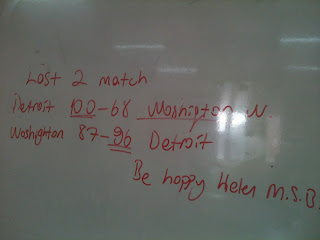 Last 2 match
Detroit 100-68 Washigton W.
Washighton 87-96 Detroit
Be happy Helen M.S.B.